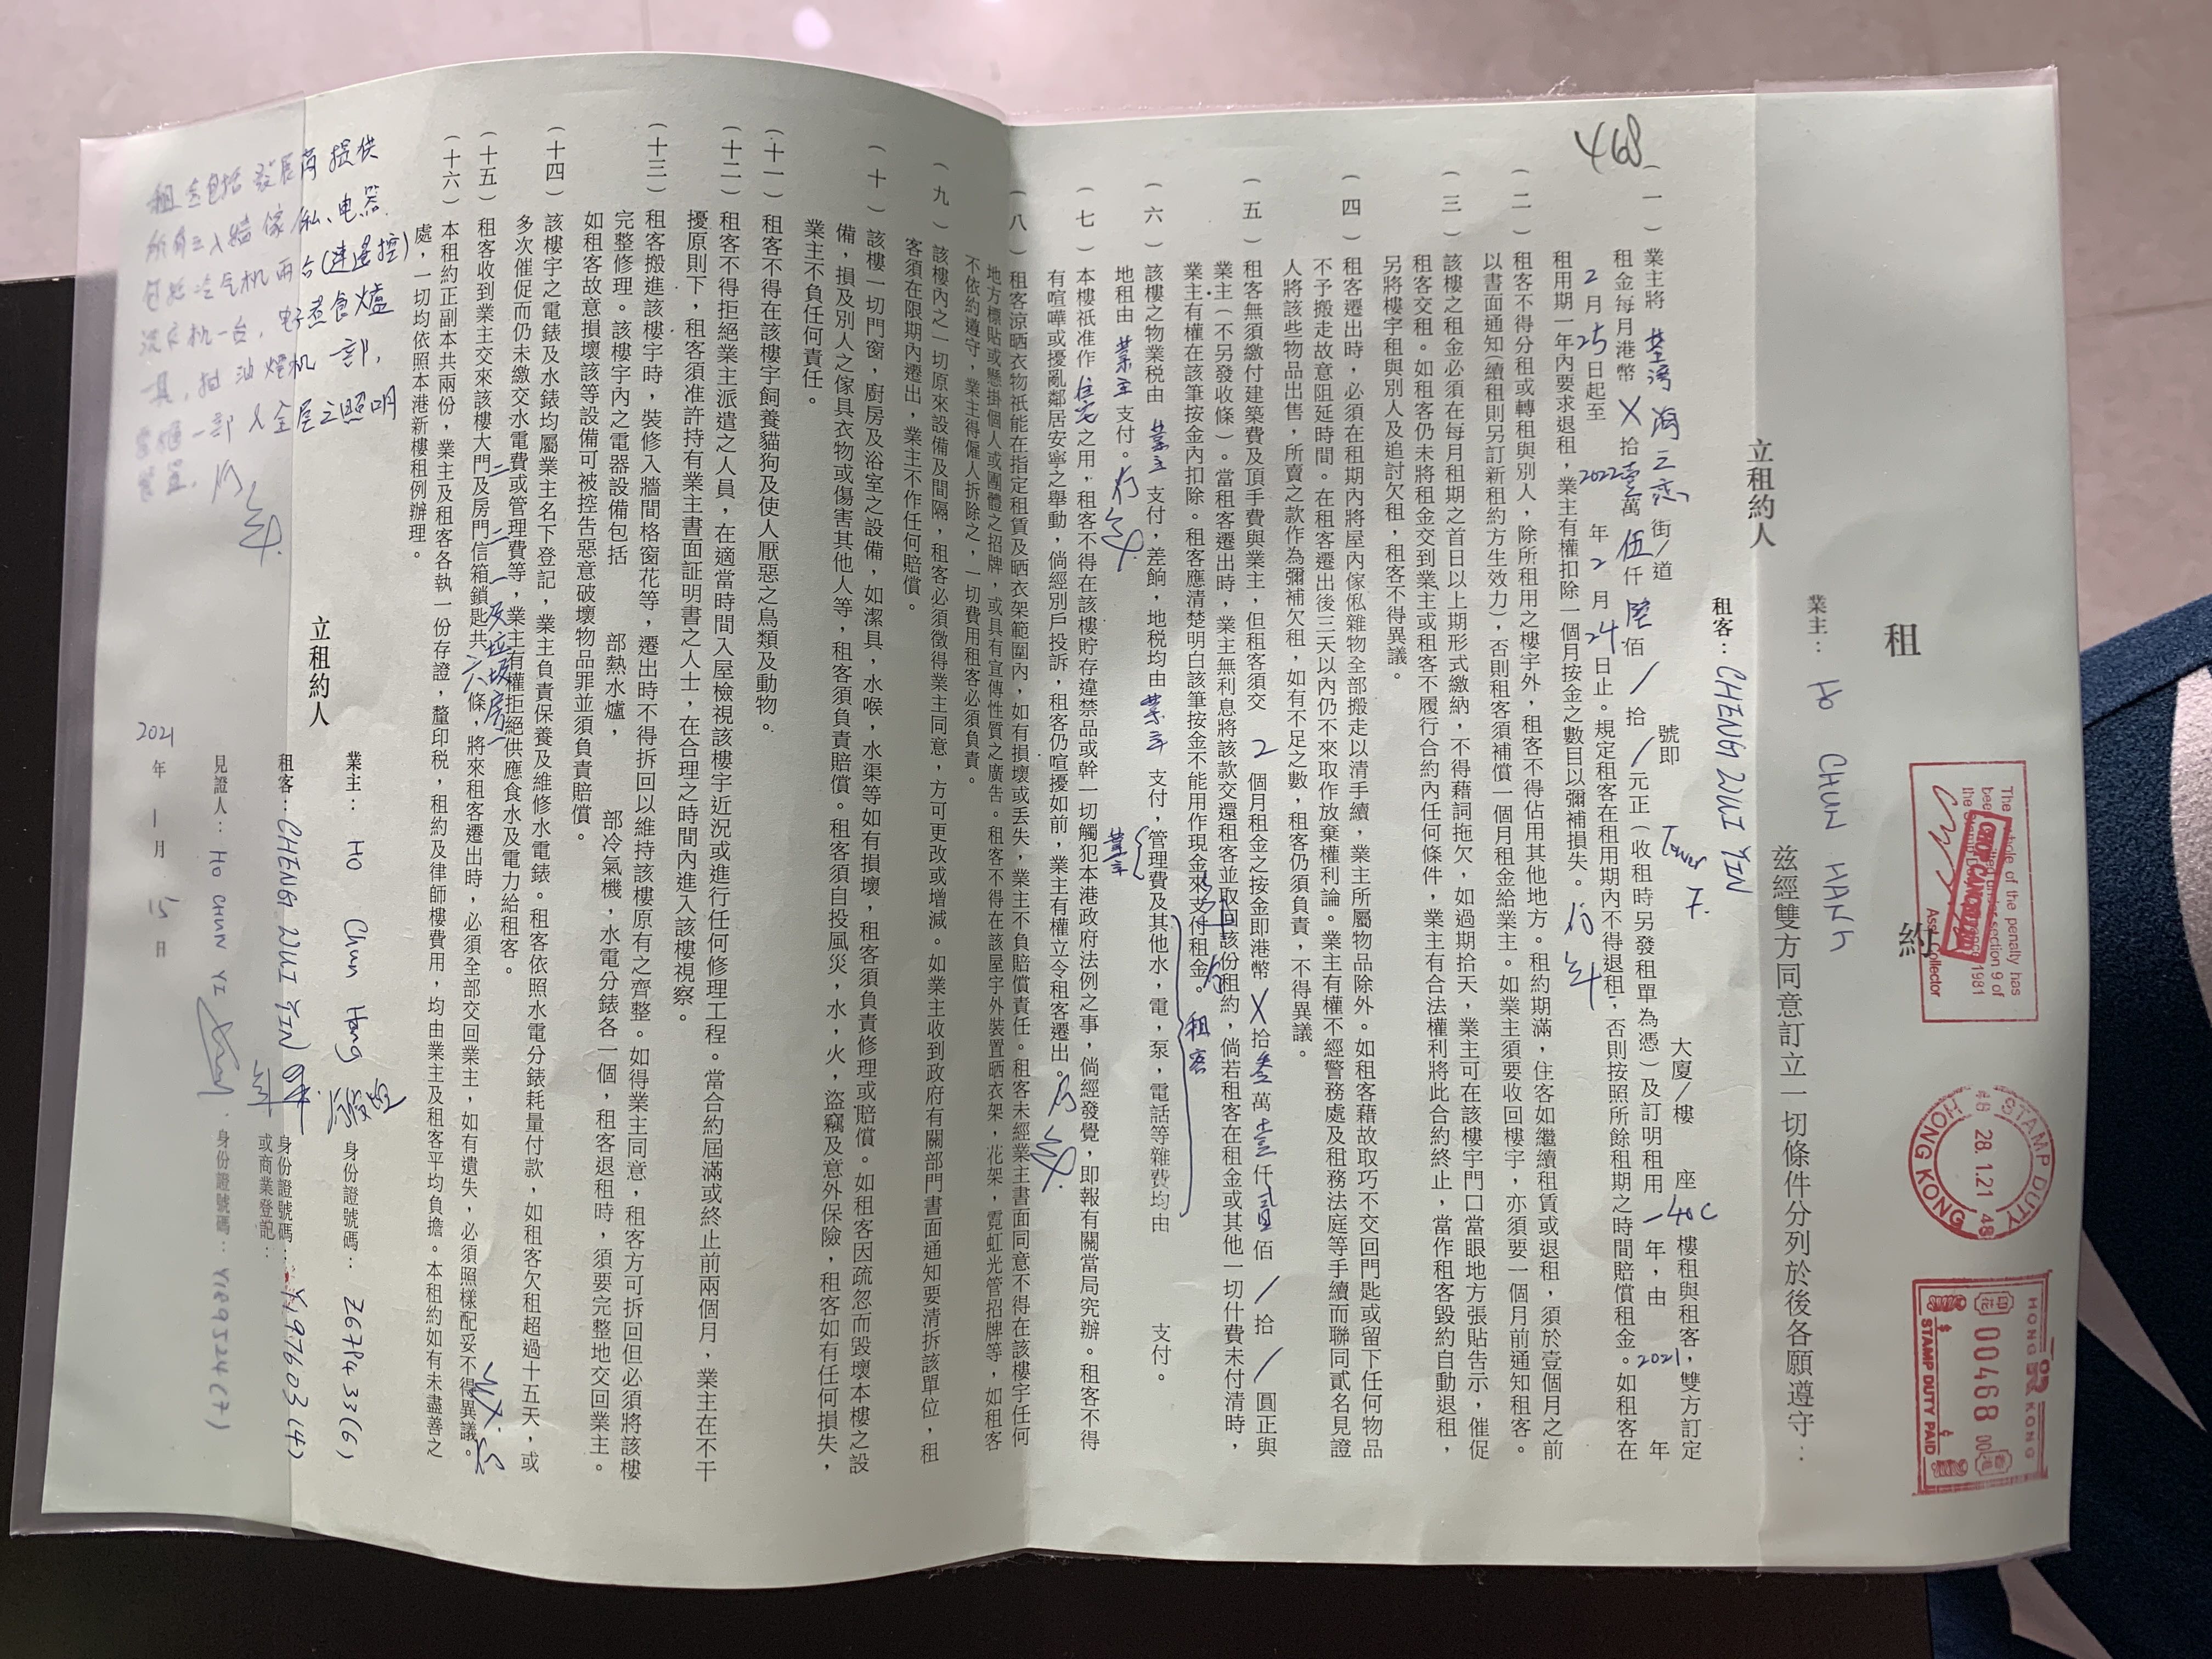 租約
The whole of the penalty has
been remitted under section 9 of
the Stamp Duty Ordinance 1981
Asst. Collector
STAMP DUTY
28.1.21
HONG KONG
HONG KONG
00468
STAMP DUTY PAID
468
業主：HO CHUN HANG
立租約人
茲經雙方同意訂立一切條件分列於後各願遵守：
租客：CHENG WUI YIN
（一）業主將荃灣海之戀街/道 號即 Tower 7. 大廈/樓 座 40C 樓租與租客，雙方訂定
租金每月港幣 X 拾壹萬伍仟陸佰 / 拾 / 元正（收租時另發租單為憑）及訂明租用一年，由2021年
2月25日起至2022年2月24日止。規定租客在租用期內不得退租，否則按照所餘租期之時間賠償租金。如租客在
租用期一年內要求退租，業主有權扣除一個月按金之數目以彌補損失。
（二）租客不得分租或轉租與別人，除所租用之樓宇外，租客不得佔用其他地方。租約期滿，住客如繼續租賃或退租，須於壹個月之前
以書面通知(續租則另訂新租約方生效力)，否則租客須補償一個月租金給業主。如業主須要收回樓宇，亦須要一個月前通知租客。
（三）該樓之租金必須在每月租期之首日以上期形式繳納，不得藉詞拖欠，如過期拾天，業主可在該樓宇門口當眼地方張貼告示，催促
租客交租。如租客仍未將租金交到業主或租客不履行合約內任何條件，業主有合法權利將此合約終止，當作租客毀約自動退租，
另將樓宇租與別人及追討欠租，租客不得異議。
（四）租客遷出時，必須在租期內將屋內傢俬雜物全部搬走以清手續，業主所屬物品除外。如租客藉故取巧不交回門匙或留下任何物品
不予搬走故意阻延時間。在租客遷出後三天以內仍不來取作放棄權利論。業主有權不經警務處及租務法庭等手續而聯同貳名見證
人將該些物品出售，所賣之款作為彌補欠租，如有不足之數，租客仍須負責，不得異議。
（五）租客無須繳付建築費及頂手費與業主，但租客須交 2 個月租金之按金即港幣 X 拾叁萬壹仟貳佰 / 拾 / 圓正與
業主（不另發收條）。當租客遷出時，業主無利息將該款交還租客並取回該份租約，倘若租客在租金或其他一切什費未付清時，
業主有權在該筆按金內扣除。租客應清楚明白該筆按金不能用作現金來支付租金。
（六）該樓之物業税由業主支付，差餉，地税均由業主支付，管理費及其他水，電，泵，電話等雜費均由租客支付。
業主
地租由業主支付。
（七）本樓祇准作住宅之用，租客不得在該樓貯存違禁品或幹一切觸犯本港政府法例之事，倘經發覺，即報有關當局究辦。租客不得
有喧嘩或擾亂鄰居安寧之舉動，倘經別戶投訴，租客仍喧擾如前，業主有權立令租客遷出。
（八）租客涼晒衣物祇能在指定租賃及晒衣架範圍內，如有損壞或丟失，業主不負賠償責任。租客未經業主書面同意不得在該樓宇任何
地方標貼或懸掛個人或團體之招牌，或具有宣傳性質之廣告。租客不得在該屋宇外裝置晒衣架，花架，霓虹光管招牌等，如租客
不依約遵守，業主得僱人拆除之，一切費用租客必須負責。
（九）該樓內之一切原來設備及間隔，租客必須徵得業主同意，方可更改或增減。如業主收到政府有關部門書面通知要清拆該單位，租
客須在限期內遷出，業主不作任何賠償。
（十）該樓一切門窗，廚房及浴室之設備，如潔具，水喉，水渠等如有損壞，租客須負責修理或賠償。如租客因疏忽而毀壞本樓之設
備，損及別人之傢具衣物或傷害其他人等，租客須負責賠償。租客須自投風災，水，火，盜竊及意外保險，租客如有任何損失，
業主不負任何責任。
（十一）租客不得在該樓宇飼養貓狗及使人厭惡之鳥類及動物。
（十二）租客不得拒絕業主派遣之人員，在適當時間入屋檢視該樓宇近況或進行任何修理工程。當合約屆滿或終止前兩個月，業主在不干
擾原則下，租客須准許持有業主書面証明書之人士，在合理之時間內進入該樓視察。
（十三）租客搬進該樓宇時，裝修入牆間格窗花等，遷出時不得拆回以維持該樓原有之齊整。如得業主同意，租客方可拆回但必須將該樓
完整修理。該樓宇內之電器設備包括 部熱水爐， 部冷氣機，水電分錶各一個，租客退租時，須要完整地交回業主。
如租客故意損壞該等設備可被控告惡意破壞物品罪並須負責賠償。
（十四）該樓宇之電錶及水錶均屬業主名下登記，業主負責保養及維修水電錶。租客依照水電分錶耗量付款，如租客欠租超過十五天，或
多次催促而仍未繳交水電費或管理費等，業主有權拒絕供應食水及電力給租客。
（十五）租客收到業主交來該樓大門及房門信箱鎖匙共六條，將來租客遷出時，必須全部交回業主，如有遺失，必須照樣配妥不得異議。
二 二 一 及垃圾房一
（十六）本租約正副本共兩份，業主及租客各執一份存證，釐印税，租約及律師樓費用，均由業主及租客平均負擔。本租約如有未盡善之
處，一切均依照本港新樓租例辦理。
租金包括發展商提供
所有之入牆傢俬、电器
包括冷气机兩台(連遙控)
洗衣机一台，电子煮食爐
一具，抽油煙机一部，
雪櫃一部及全屋之照明
裝置。
立租約人
業主：Ho Chun Hang 身份證號碼：Z678433(6)
租客：CHENG WUI YIN 身份證號碼：Y197603(4)
或商業登記：
見證人：HO CHUN YI 身份證號碼：Y1895224(7)
2021年1月15日